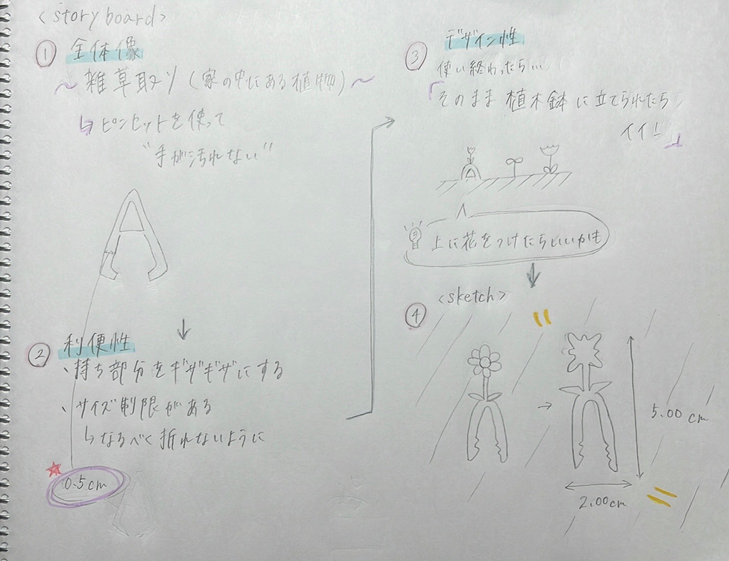 <story board>
① 全体像
~ 雑草取り (家の中にある植物) ~
↳ ピンセットを使って
"手が汚れない"
② 利便性
・持ち部分をギザギザにする
・サイズ制限がある
↳ なるべく折れないように
0.5cm
③ デザイン性
使い終わったらい、
「そのまま 植木鉢 に立てられたら
イイ!」
上に花をつけたらいいかも
④ <sketch>
5.00 cm
2.00cm